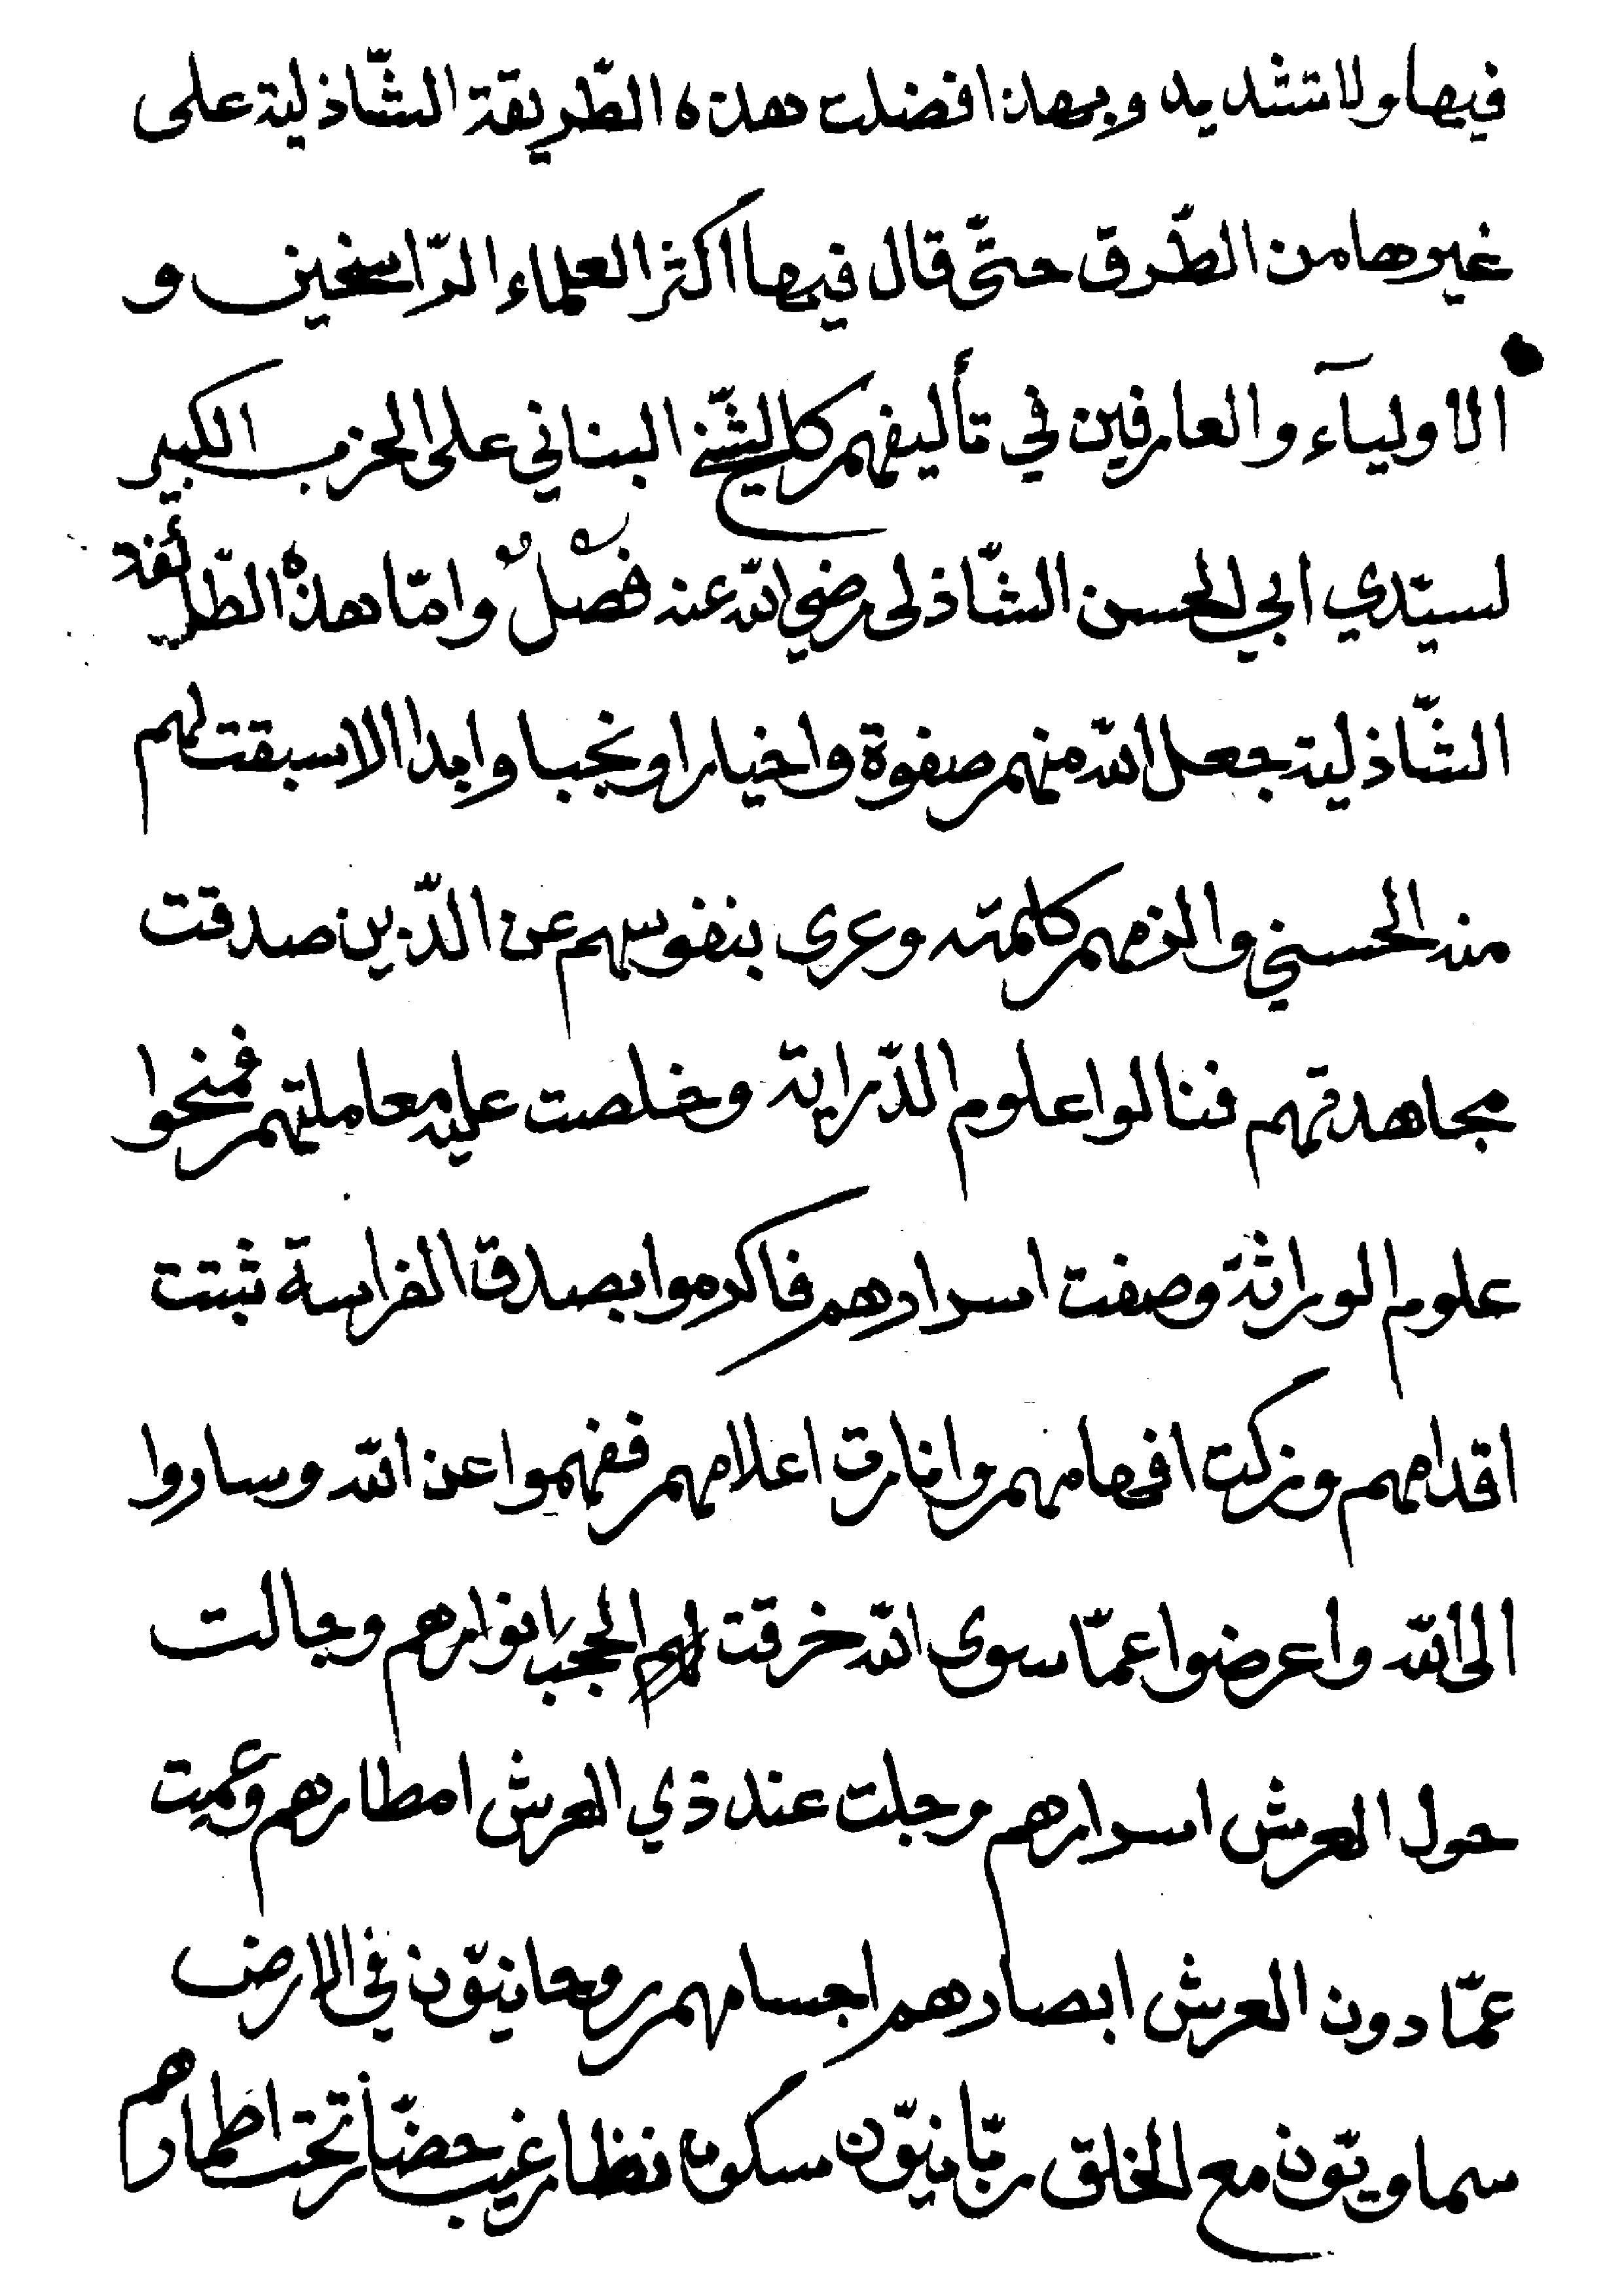 فيها ولا تشديد وبهذا فضلت هذه الطّريقة الشّاذلية على
غيرها من الطّرق حتّى قال فيها اكثر العلماء الرّاسخين و
الاوليآء والعارفين في تأليفهم كالشّيخ البناني على الحزب الكبير
لسيّدي ابي الحسن الشّاذلى رضي الله عنه فصْلٌ وامّا هذه الطّائفة
الشّاذلية جعل الله منهم صفوة واخيارا ونجبا وابدالا سبقت لهم
منه الحسني والزمهم كلمته وعزى بنفوسهم عن الدّين صدقت
مجاهدتهم فنالوا علوم الدّراية وخلصت عليه معاملتهم فمنحوا
علوم الوراثة وصفت اسرارهم فاكرموا بصدق الفراسة ثبتت
اقدامهم وزكت افهامهم وانارت اعلامهم ففهموا عن الله وساروا
الى الله واعرضوا عمّا سوى الله خرقت الحجب انوارهم وجالت
حول العرش اسرارهم وجلت عند ذي العرش امطارهم وعميت
عمّا دون العرش ابصارهم اجسامهم روحانيّون في الارض
سماويّون مع الخلق ربّانيّون سكوت نظار غيب حضّار تحت اطمارهم